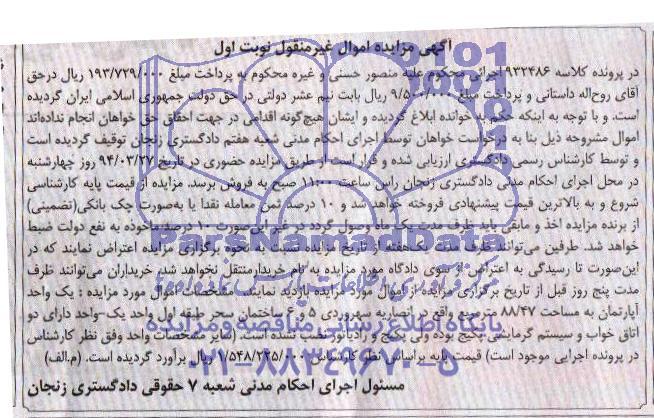 آگهی مزایده اموال غیرمنقول نوبت اول
در پرونده کلاسه ۹۳۲۴۸۶ اجرائی محکوم علیه منصور حسنی و غیره محکوم به پرداخت مبلغ ۱۹۳/۷۲۹/۰۰۰ ریال درحق
آقای روح‌اله داستانی و پرداخت مبلغ ۹/۵۰۰/۰۰۰ ریال بابت نیم عشر دولتی در حق دولت جمهوری اسلامی ایران گردیده
است. و با توجه به اینکه حکم به خوانده ابلاغ گردیده و ایشان هیچ‌گونه اقدامی در جهت احقاق حق خواهان انجام نداده‌اند
اموال مشروحه ذیل بنا به درخواست خواهان توسط اجرای احکام مدنی شعبه هفتم دادگستری زنجان توقیف گردیده است
و توسط کارشناس رسمی دادگستری ارزیابی شده و قرار است از طریق مزایده حضوری در تاریخ ۹۴/۰۳/۲۷ روز چهارشنبه
در محل اجرای احکام مدنی دادگستری زنجان راس ساعت ۱۱:۰۰ صبح به فروش برسد. مزایده از قیمت پایه کارشناسی
شروع و به بالاترین قیمت پیشنهادی فروخته خواهد شد و ۱۰ درصد ثمن معامله نقدا یا به‌صورت چک بانکی(تضمینی)
از برنده مزایده اخذ و مابقی باید ظرف مدت یک ماه وصول گردد در غیر این‌صورت ۱۰ درصد ماخوذه به نفع دولت ضبط
خواهد شد. طرفین می‌توانند ظرف مدت یک هفته از تاریخ مزایده نسبت به نحوه برگزاری مزایده اعتراض نمایند که در
این‌صورت تا رسیدگی به اعتراض از سوی دادگاه مورد مزایده به نام خریدار منتقل نخواهد شد. خریداران می‌توانند ظرف
مدت پنج روز قبل از تاریخ برگزاری مزایده از اموال مورد مزایده بازدید نمایند. مشخصات اموال مورد مزایده : یک واحد
آپارتمان به مساحت ۸۸/۴۷ مترمربع واقع در انصاریه سهروردی ۵ و ۶ ساختمان سحر طبقه اول واحد یک-واحد دارای دو
اتاق خواب و سیستم گرمایشی پکیج بوده ولی پکیج و رادیاتور نصب نشده است. (سایر مشخصات واحد وفق نظر کارشناس
در پرونده اجرایی موجود است) قیمت پایه براساس نظر کارشناس ۱/۵۴۸/۲۲۵/۰۰۰ ریال برآورد گردیده است. (م.الف)
مسئول اجرای احکام مدنی شعبه ۷ حقوقی دادگستری زنجان
ParsNamadData
پایگاه اطلاع رسانی مناقصه و مزایده
۰۲۱-۸۸۳۴۹۶۷۰-۵